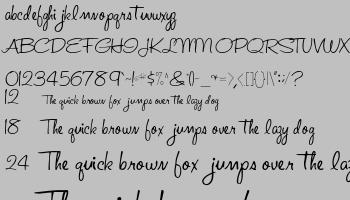 abcdefghi jklmnopqrstuvwxyz
ABCDEFGHIJKLMN OPQRSTUVWX
0123456789
12 The quick brown fox jumps over the lazy dog
18 The quick brown fox jumps over the lazy dog
24 The quick brown fox jumps over the la